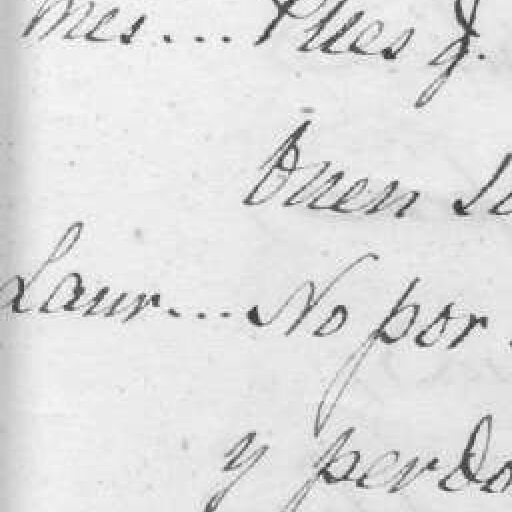 mes... Pues q.
buen
Laur... No por
y perdo